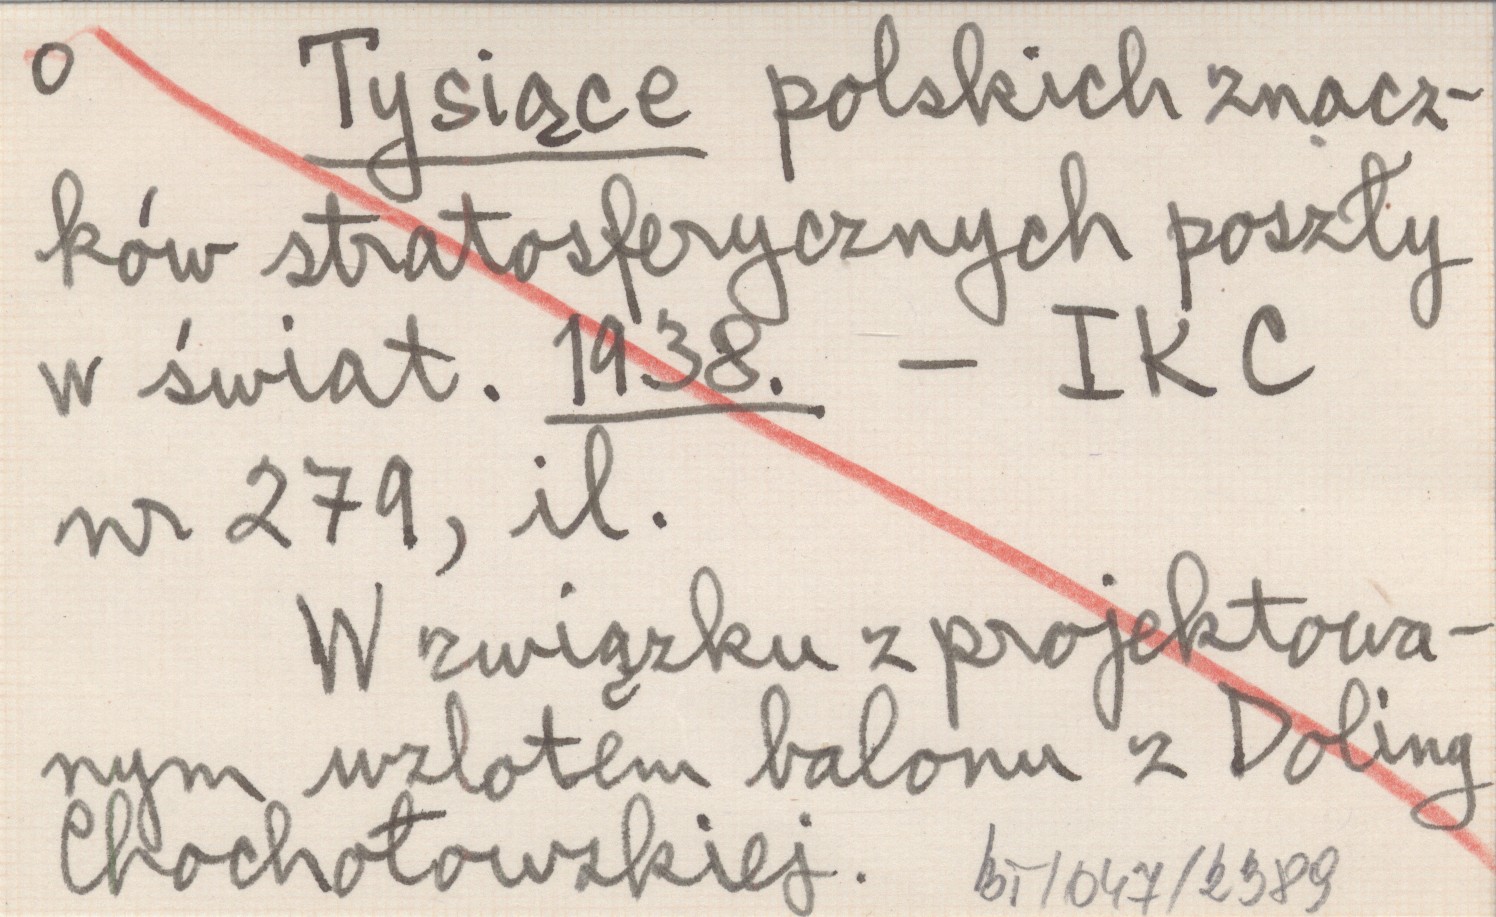 o Tysiące polskich znacz-
ków stratosferycznych poszły
w świat. 1938. – IKC
nr 279, il.
W związku z projektowa-
nym wzlotem balonu z Doliny
Chochołowskiej.
/047/2389